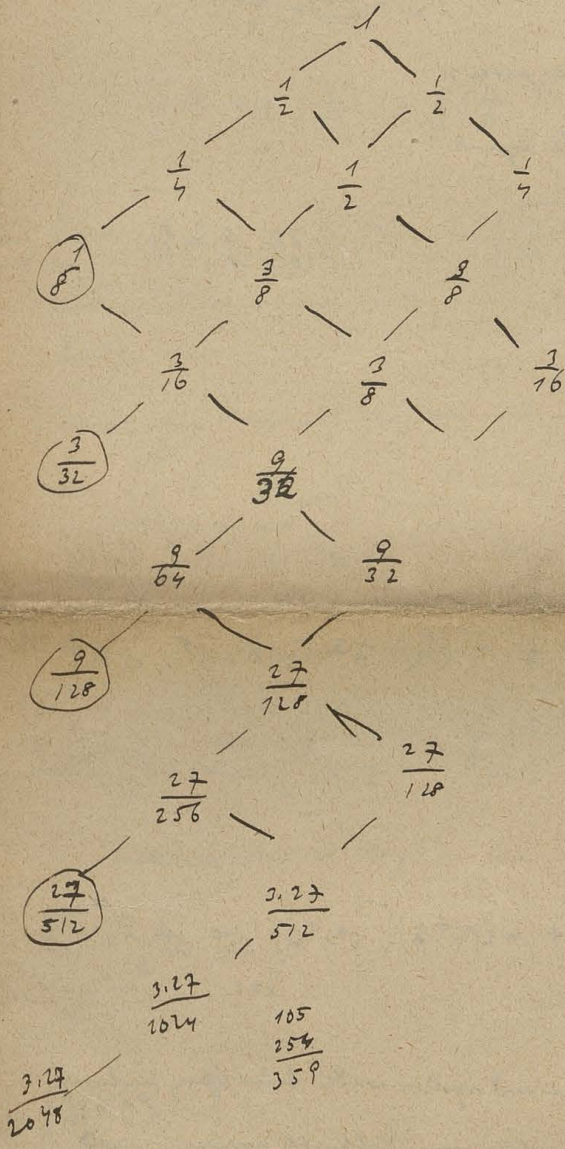 1
1/2 1/2
1/4 1/2 1/4
1/8 3/8 3/8
3/16 3/8 3/16
3/32 9/32
9/64 9/32
9/128 27/128
27/256 27/128
27/512 3.27/512
3.27/1024
105
254
359
3.27/2048